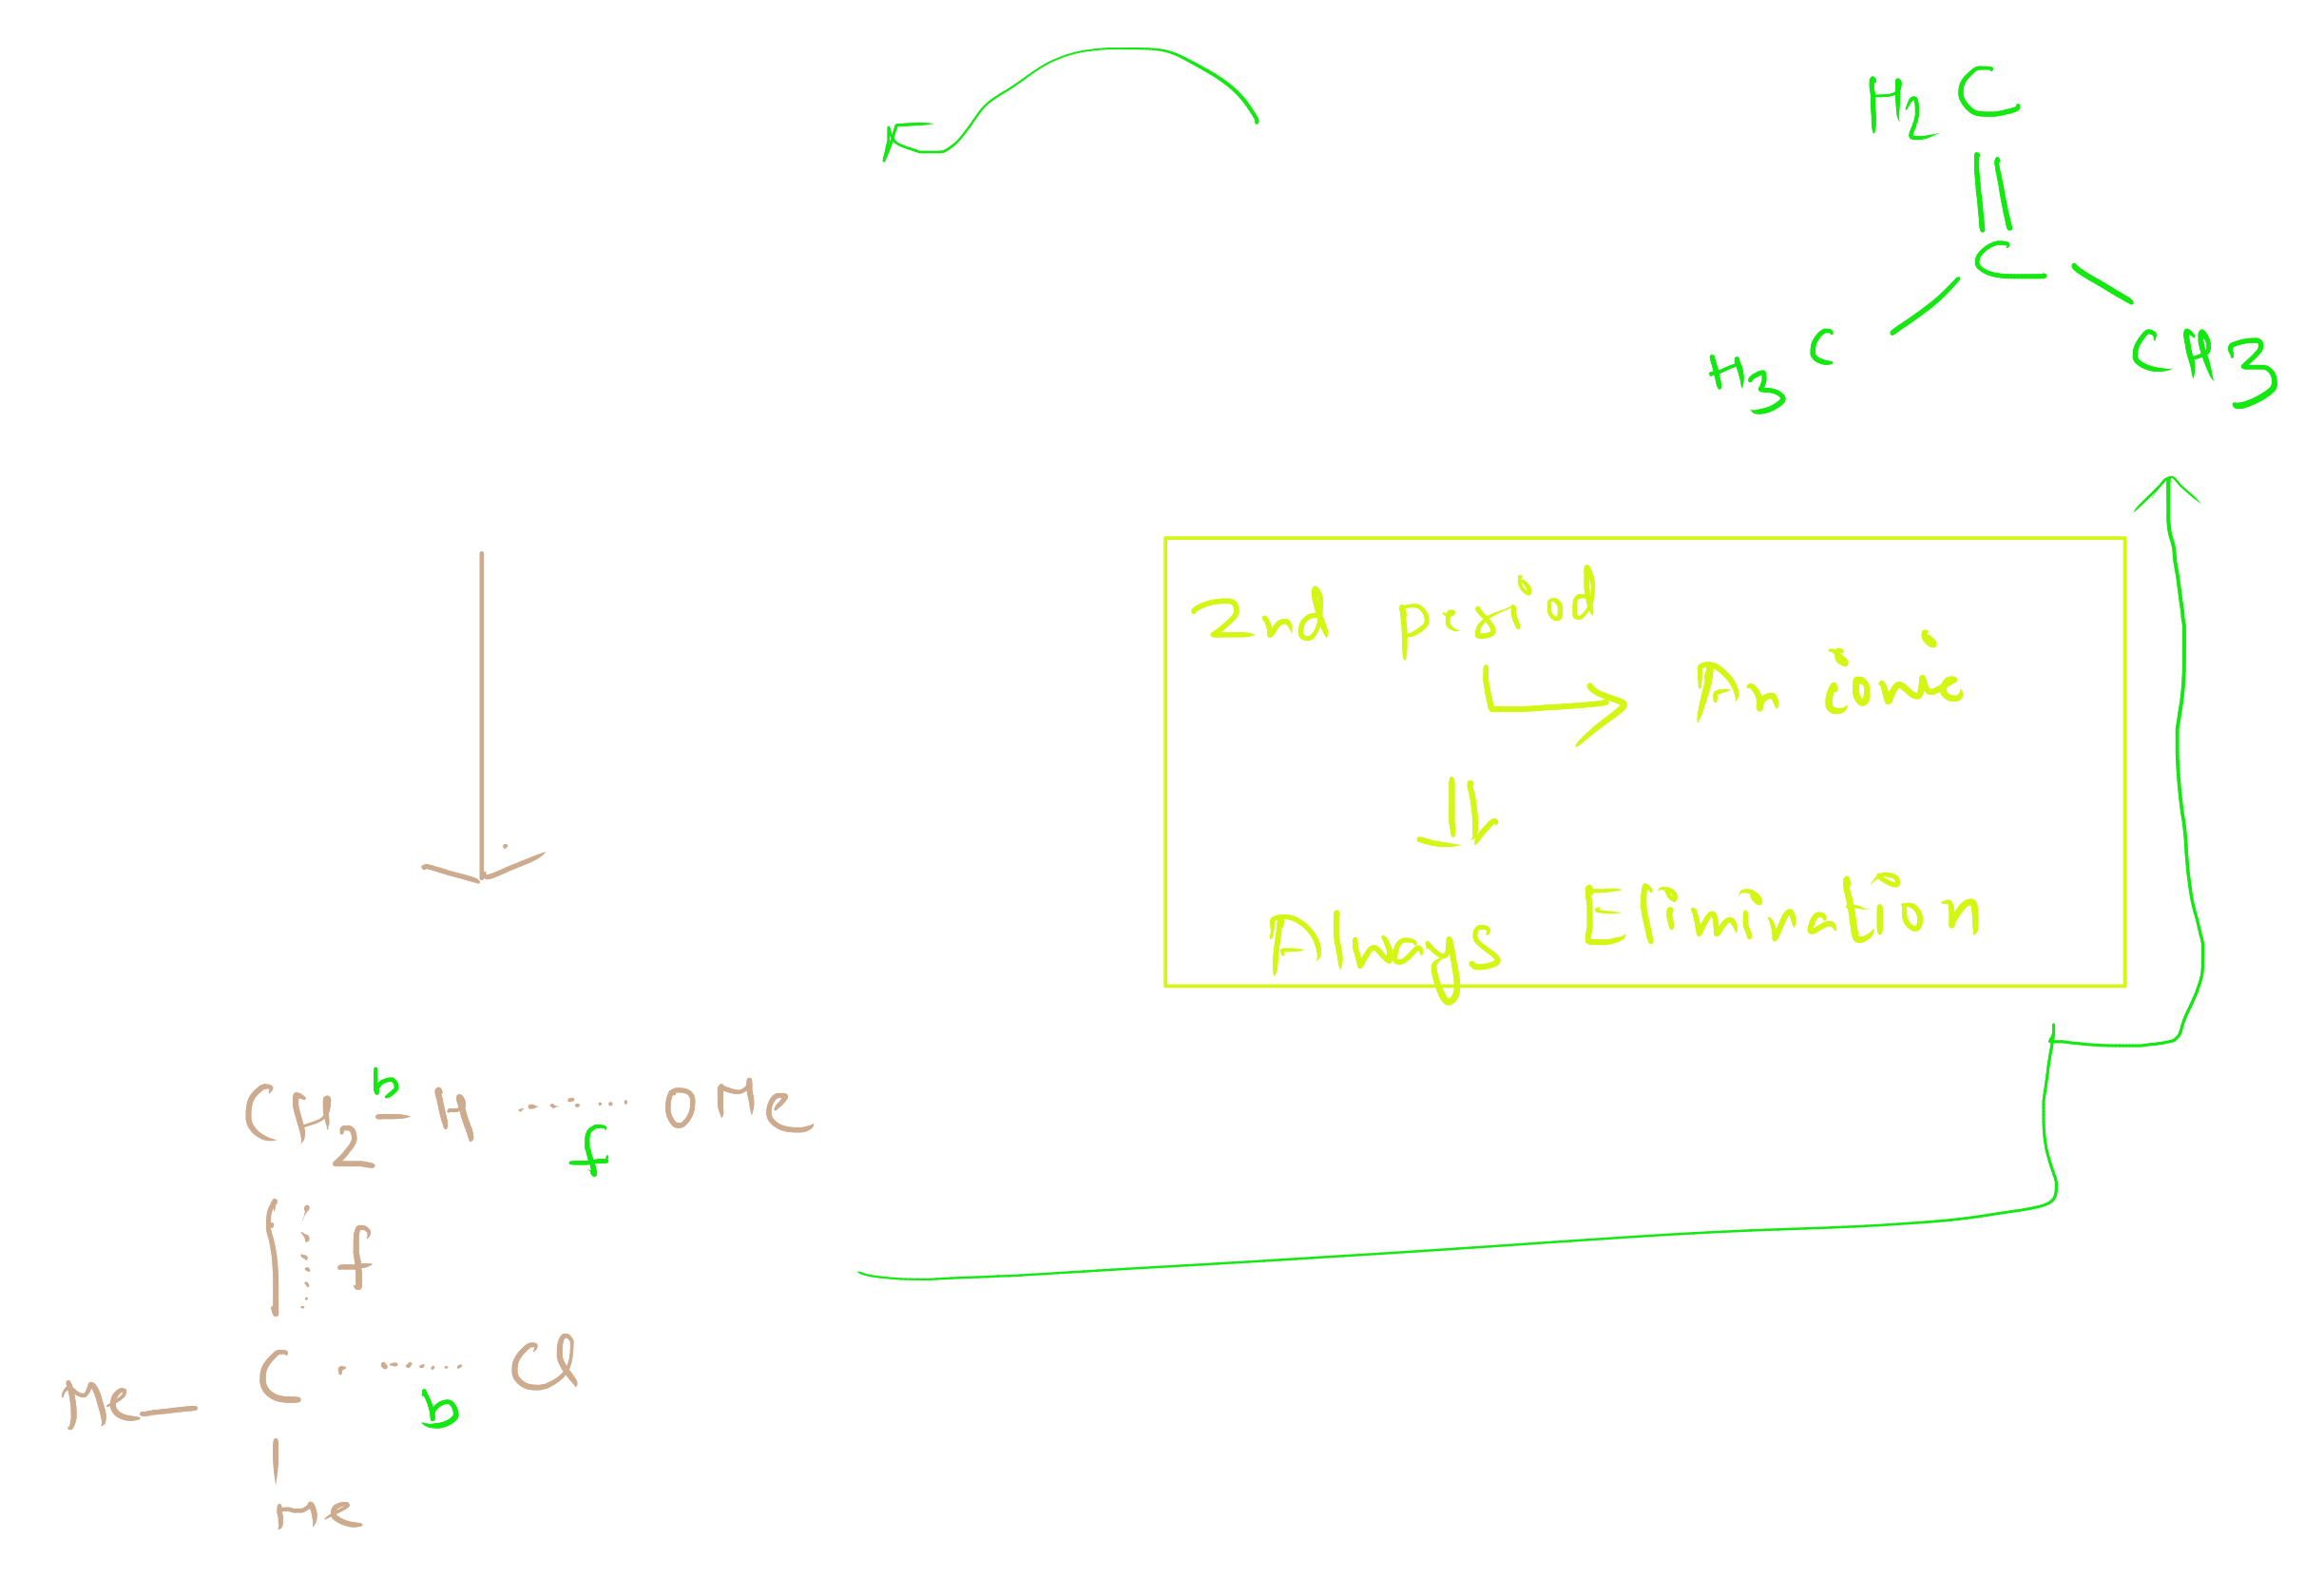 H2C
||
C
H3C CH3
2nd period
Anionic
Always Elimination
b
CH2-H ...... OMe
f
f
Me-C ...... Cl
b
me